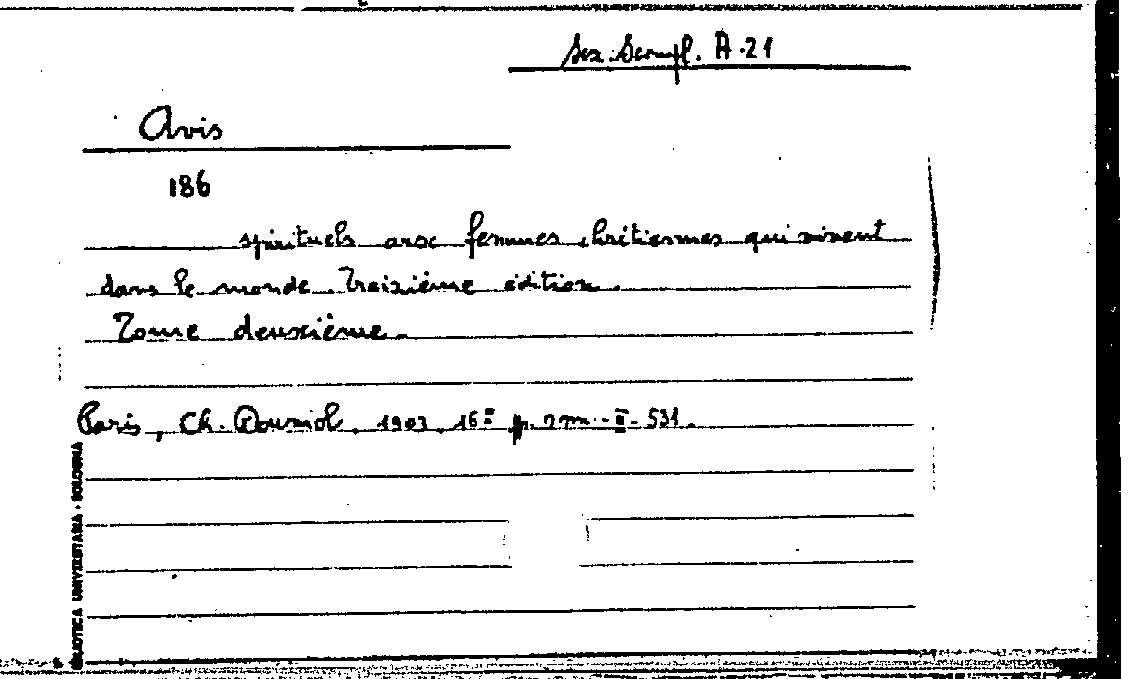 Sez. Sempl. A. 21
Avis
186
spirituels aux femmes chrétiennes qui vivent
dans le monde. Treizième édition.
Tome deuxième.
Paris, Ch. Douniol, 1903. 16° p. -II- 531.
BIBLIOTECA UNIVERSITARIA - BOLOGNA